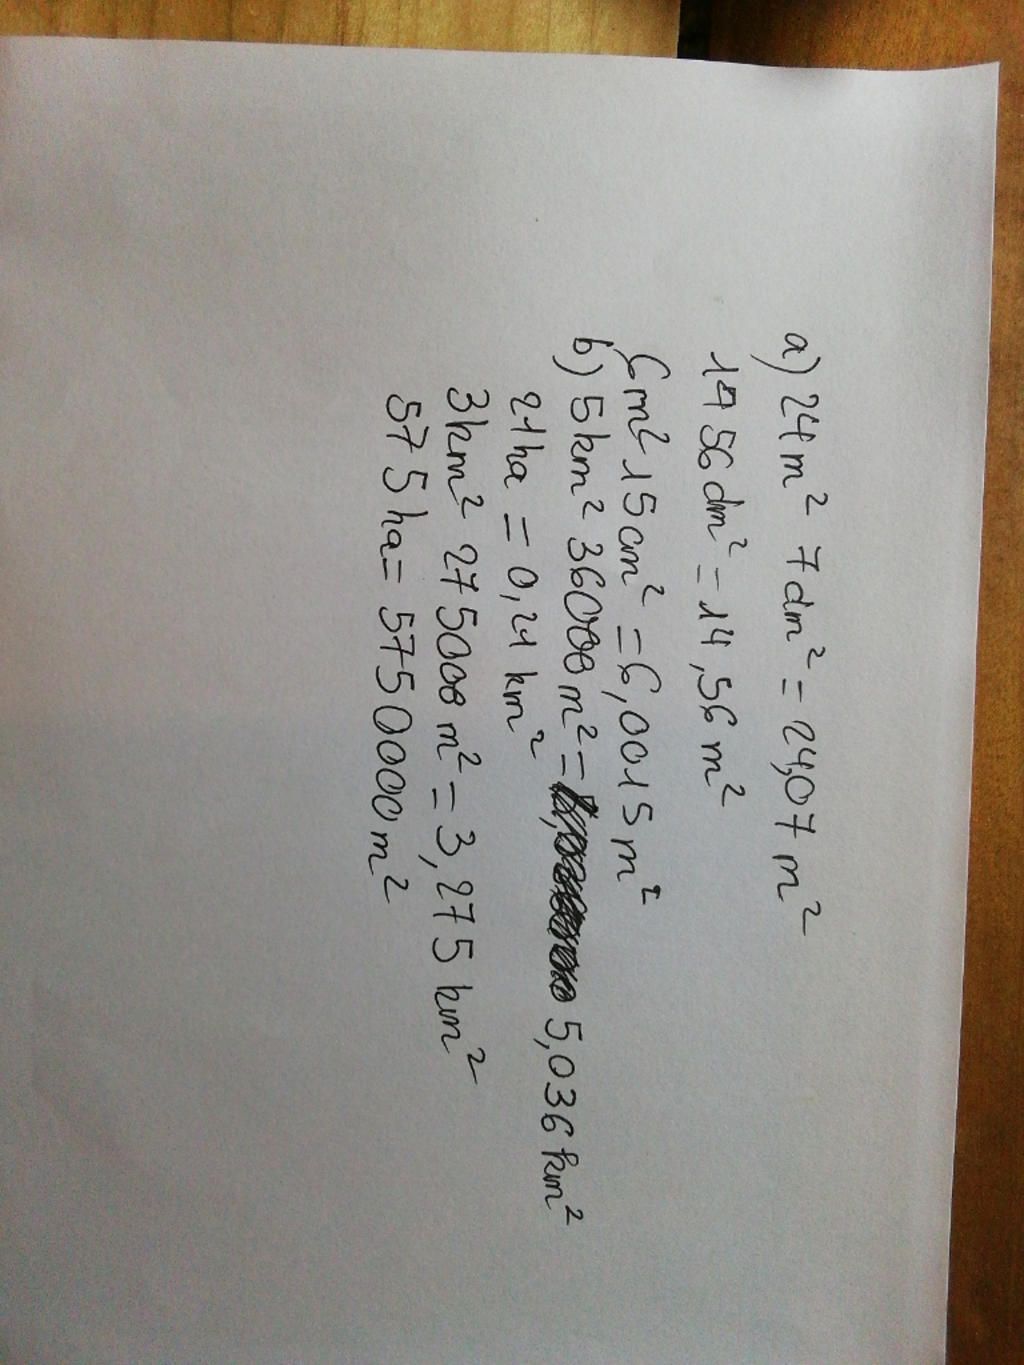 a) 24m² 7dm² = 24,07 m²
1456dm² = 14,56 m²
6m² 15cm² = 6,0015 m²
b) 5km² 36000m² = 5,036km²
21ha = 0,21 km²
3km² 275000 m² = 3,275 km²
575ha = 5750000m²